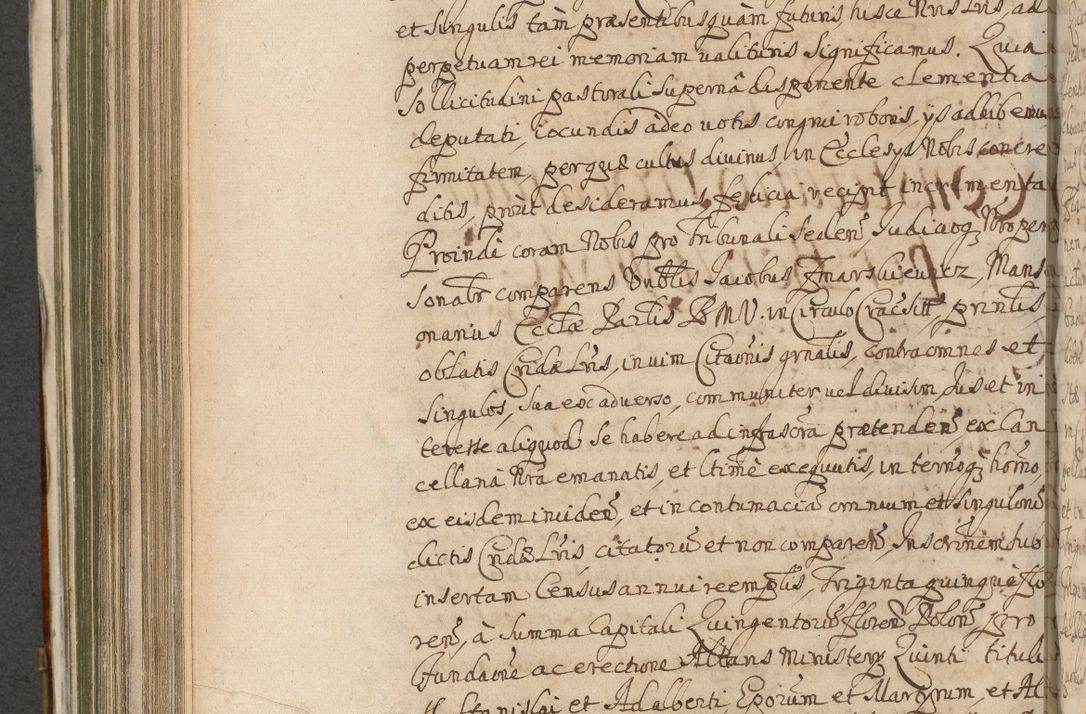 et singulis tam præsentibus quàm futuris hisce Nris Lris, ad
perpetuam rei memoriam ualituris significamus. Quia
sollicitudini pastorali supernâ disponente clementia
deputati, iocundis adeo uotis congrui roboris, ijs adhibemus
firmitatem, per quæ cultus divinus, in Ecclesijs Nobis concre
ditis, prout desideramus, felicia recipit incrementa
Proindè coram Nobis pro Tribunali seden̄, Judicioq3
sonalr comparens Jacobus Mans
onarius Ecctæ B M V. in Circulo Cracsi
oblatis Cridæ Lris, in uim Citaōnis grnalis, contra omnes et
singulos, sua ex aduerso, communiter uel diuisim, Jus et in
teresse aliquod se habere ad infrascrā prætenden̄, ex Can
cellaria Nrā emanatis, et ltimè exequutis, in termoq3 hōrno,
ex eisdem inciden̄, et in contumaciā omnium et singulorū
dictis Cridæ Lris citatorū et non comparen̄ Inscrōnem sub
insertam Census annui reemptlis, Triginta quinque flo
ren̄, à Summa Capitali Quingentorū floren̄ Polon̄, pro
fundaōne ac erectione Altaris Ministerij Quinti tituli
Stanislai et Adalberti, Eporum et Martyrum, et Al